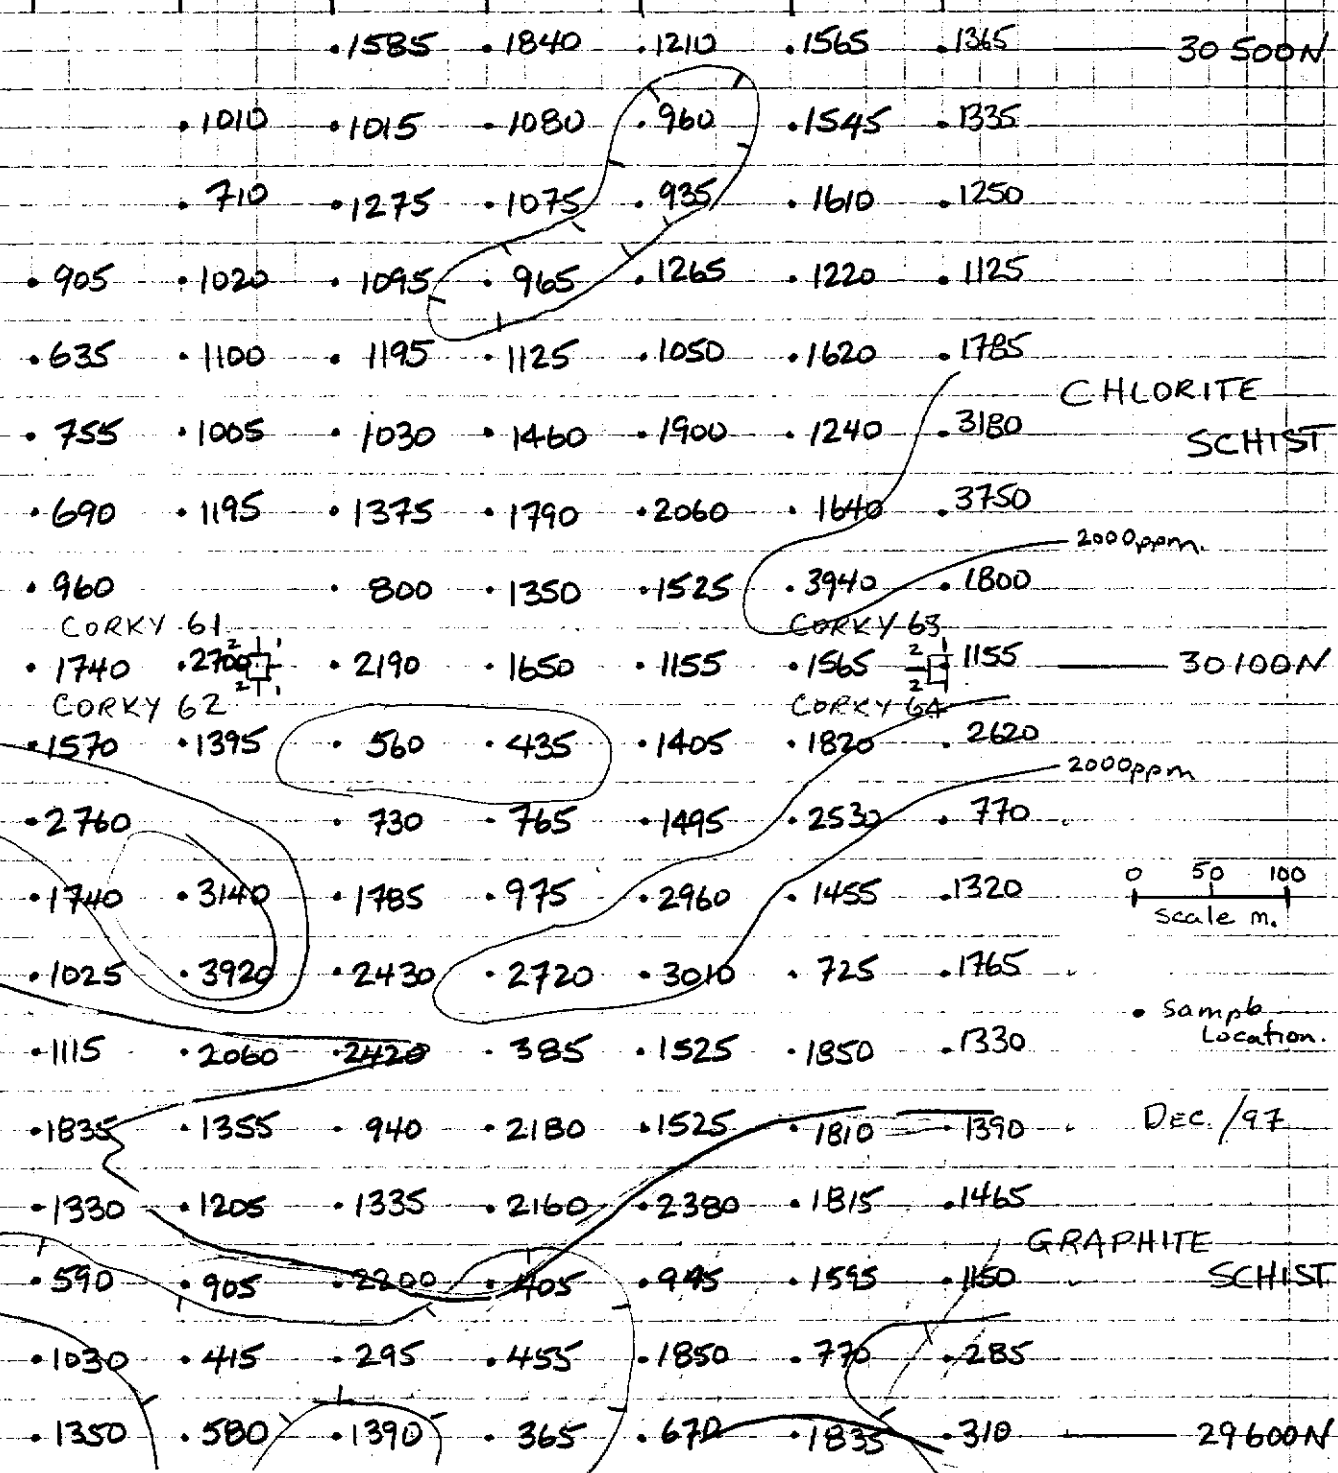 .1585 .1840 .1210 .1565 .1365 30 500N
.1010 .1015 .1080 .960 .1545 .1335
.710 .1275 .1075 .935 .1610 .1250
.905 .1020 .1095 .965 .1265 .1220 .1125
.635 .1100 .1195 .1125 .1050 .1620 .1785
CHLORITE
.755 .1005 .1030 .1460 .1900 .1240 .3180
SCHIST
.690 .1195 .1375 .1790 .2060 .1640 .3750
2000ppm.
.960 .800 .1350 .1525 .3940 .1800
CORKY 61 CORKY 63
2 1 2 1
.1740 .2700 .2190 .1650 .1155 .1565 1155 30100N
2 1 2
CORKY 62 CORKY 64
.1570 .1395 .560 .435 .1405 .1820 .2620
2000ppm
.2760 .730 .765 .1495 .2530 .770
0 50 100
.1740 .3140 .1785 .975 .2960 .1455 .1320
Scale m.
.1025 .3920 .2430 .2720 .3010 .725 .1765
• Sample
Location.
.1115 .2060 .2420 .385 .1525 .1850 .1330
.1835 .1355 .940 .2180 .1525 .1810 .1390 DEC./97
.1330 .1205 .1335 .2160 .2380 .1815 .1465
GRAPHITE
SCHIST
.590 .905 .2200 .405 .945 .1595 .1150
.1030 .415 .295 .455 .1850 .770 .285
.1350 .580 .1390 .365 .670 .1835 .310 29600N